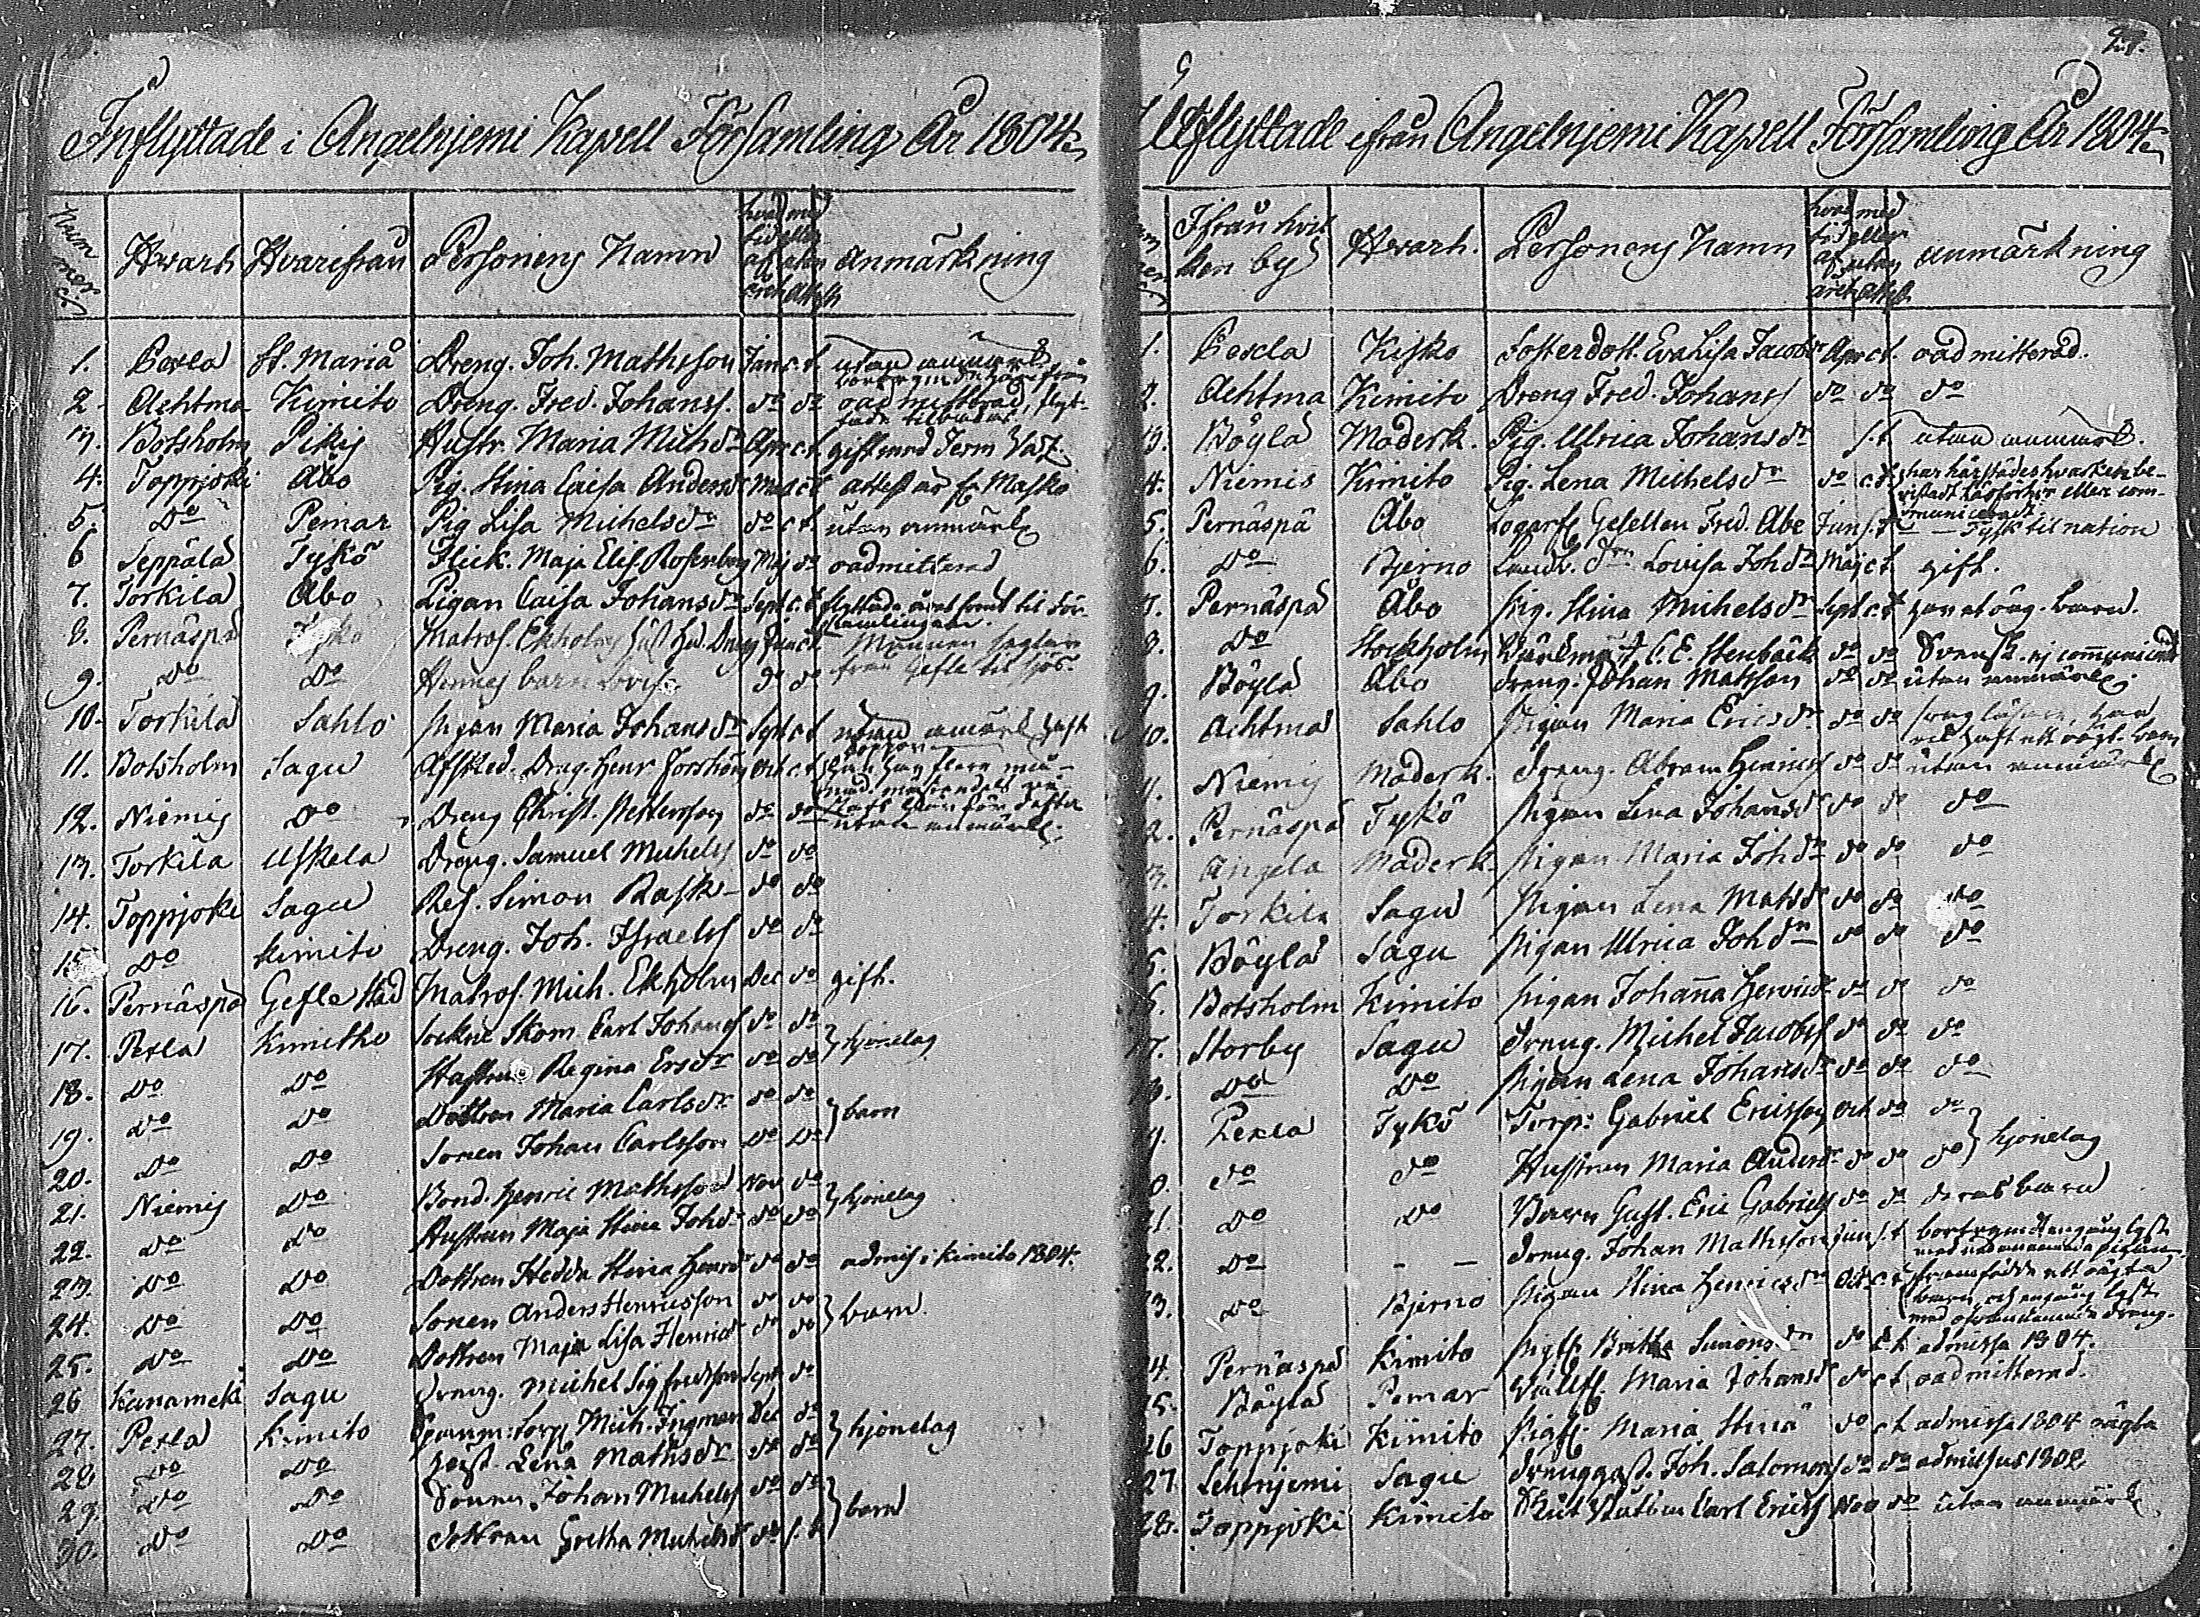 Inflyttade i Angelnjemi Kapell Församling År 1804
Num mer Hvart Hvarifrån Personens Namn hvad tid af året med eller utan attest anmärkning
1. Pexla St. Mariæ Dreng. Joh. Mathsson Jan c.t. utan anmärk
2 Achtma Kimito Dreng. Fred. Johanss. do do oadmitterad, flyt-
tade tilbakas
3. Botsholm Pikis Hustr. Maria Michsdr Apr c.t. gift med
4. Toppjoki Åbo Pig. Stina Caisa Andersdr Maj c.t. attest är fr Masko
5. do Peimar Pig Lisa Michelsdr do c.t. utan anmärk
6 Seppälä Tykö Flick. Maja Elis. Rosenberg Maj do oadmitterad
7. Torkila Åbo Pigan Caisa Johansdr Sept c.t. flyttade året först til För-
samlingen.
8. Pernäspä Tykö Matros. Ekholms Jun c.t. Mannen seglar
från Gefle til sjös.
9. do do Hennes barn Lovisa do do
10. Torkila Sahlo Pigan Maria Johansdr Sept c.t. utan anmärk haft
koppor
11. Botsholm Sagu Afsked. Drag. Henr. Forsström Oct c.t.
12. Niemis do Dreng Christ. Pettersson do do utan anmärk.
13. Torkila Uskela Dreng. Samuel Michelss do do
14. Toppjoki Sagu Ref. Simon Rask do do
15 do Kimito Dreng. Joh. Israelss do do
16. Pernäspä Gefle Stad Matros. Mich. Ekholm Dec do gift.
17. Pexla Kimitho Sockne Skom. Carl Johanss do do } hjonelag
18. do do Hustrun Regina Ersdr do do
19. do do Dottren Maria Carlsdr do do } barn
20. do do Sonen Johan Carlsson do do
21. Niemis do Bond. Henric Mathsson Nov do } hjonelag
22. do do Hustrun Maja Stina Johdr do do
23. do do Dottren Hedda Stina Henrdr do do admis i Kimito 1804.
24. do do Sonen Anders Henricsson do do } barn.
25. do do Dottren Maja Lisa Henricsdr do do
26 Kanamäki Sagu Dreng. Michel Sigfredsson Sept do
27. Pexla Kimito Mich. Ingman Dec do } hjonelag
28 do do Hust. Lena Mathsdr do do
29. do do Sonen Johan Michelss do do } barn
30. do do Dottren Gretha Michelsdr do s.t.
27.
Utflyttade ifrån Angelnjemi Kapell Församling År 1804
Ifrån hvil ken by Hvarh. Personens Namn hvad tid af året med eller utan attest anmärkning
1. Pexla Kisko Fosterdott. Eva Lisa Jacobsdr Apr c.t. oadmitterad.
2. Achtma Kimito Dreng Fred. Johanss do do do
3. Böylä Moderk. Pig. Ulrica Johansdr s.t utan anmärk.
4. Niemis Kimito Pig. Lena Michelsdr do c.t. har härstädes hvarken be-
vistadt Läsförhör eller com-
municerat
5. Pernäspä Åbo Logarf. Gesellen Fred. Abe Jun s.t. Tysk til nation
6. do Bjerno Lovisa Johdr Maj c.t. gift.
7. Pernäspä Åbo Pig. Stina Michelsdr Sept c.t. har et oäg. barn.
8. do Stockholm C. E. Stenbäck do do Svensk. ej communicerat
9. Böylä Åbo Dreng. Johan Matsson do do utan anmärk.
10. Achtma Sahlo Pigan Maria Ericsdr do do svag läsare, har
ock haft ett oägt. barn
11. Niemis Moderk. Dreng. Abram Henricss do do utan anmärk
12. Pernäspä Tykö Pigan Lena Johansdr do do do
13. Angela Moderk. Pigan Maria Johdr do do do
14. Torkila Sagu Pigan Lena Matsdr do do do
15. Böylä Sagu Pigan Ulrica Johdr do do do
16. Botsholm Kimito Pigan Johanna Henricsdr do do do
17. Storby Sagu Dreng. Michel Jacobss do do do
18. do do Pigan Lena Johansdr do do do
19. Pexla Tykö Torp. Gabriel Ericsson Oct do do } hjonelag
20. do do Hustrun Maria Andersdr do do do
21. do do Barn Gust. Eric Gabrielss do do deras barn
22. do – – Dreng. Johan Mathsson Jun s.t bortrymdt en gång lyst
med nedannämnda pigan
23. do Bjerno Pigan Stina Henricsdr Oct c.t. framfödde ett oägta
barn, och en gång lyst
med ofvannämnda dreng.
24. Pernäspä Kimito Pigfl. Britha Simonsdr do c.t. admissa 1804.
25. Böylä Pemar Vallfl. Maria Johansdr do c.t. oadmitterad.
26 Toppjoki Kimito Pigfl. Maria Stina do c.t. admissa 1804 oägta
27 Lehmjemi Sagu Drenggoss. Joh. Salomonss do do admissus 1802
28. Toppjoki Kimito Carl Ericss Nov do utan anmärk